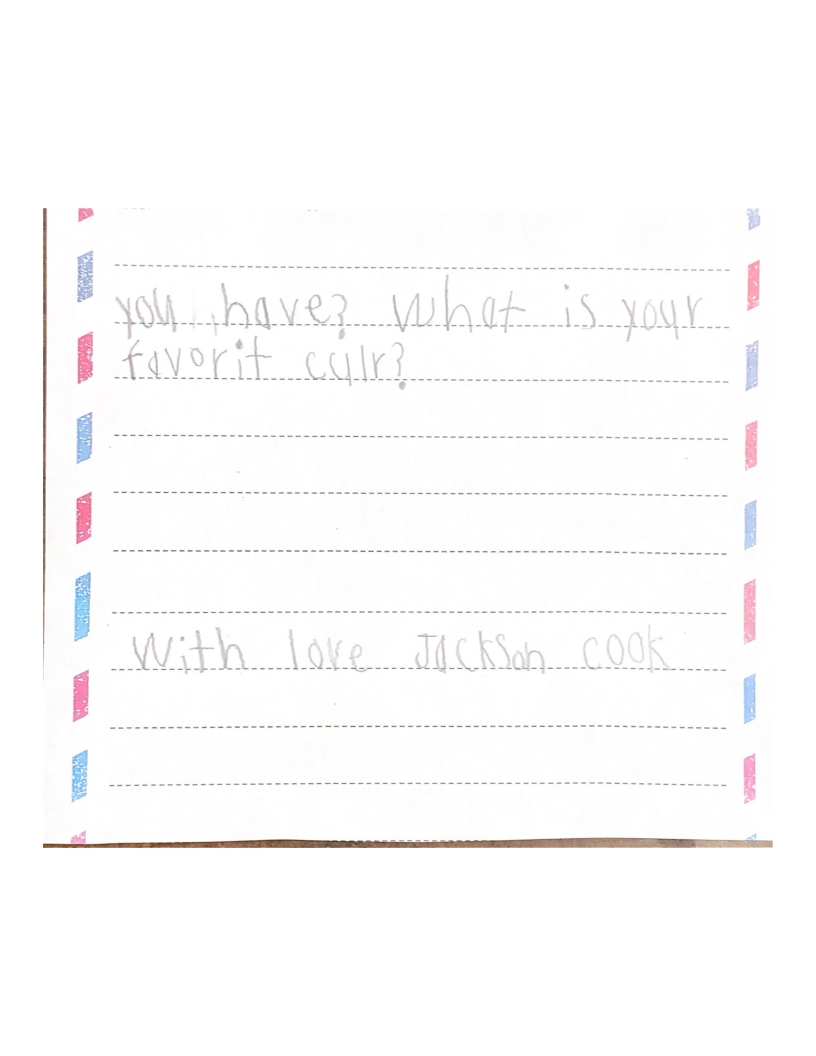 you have? What is your
favorit culr?
With love Jackson cook